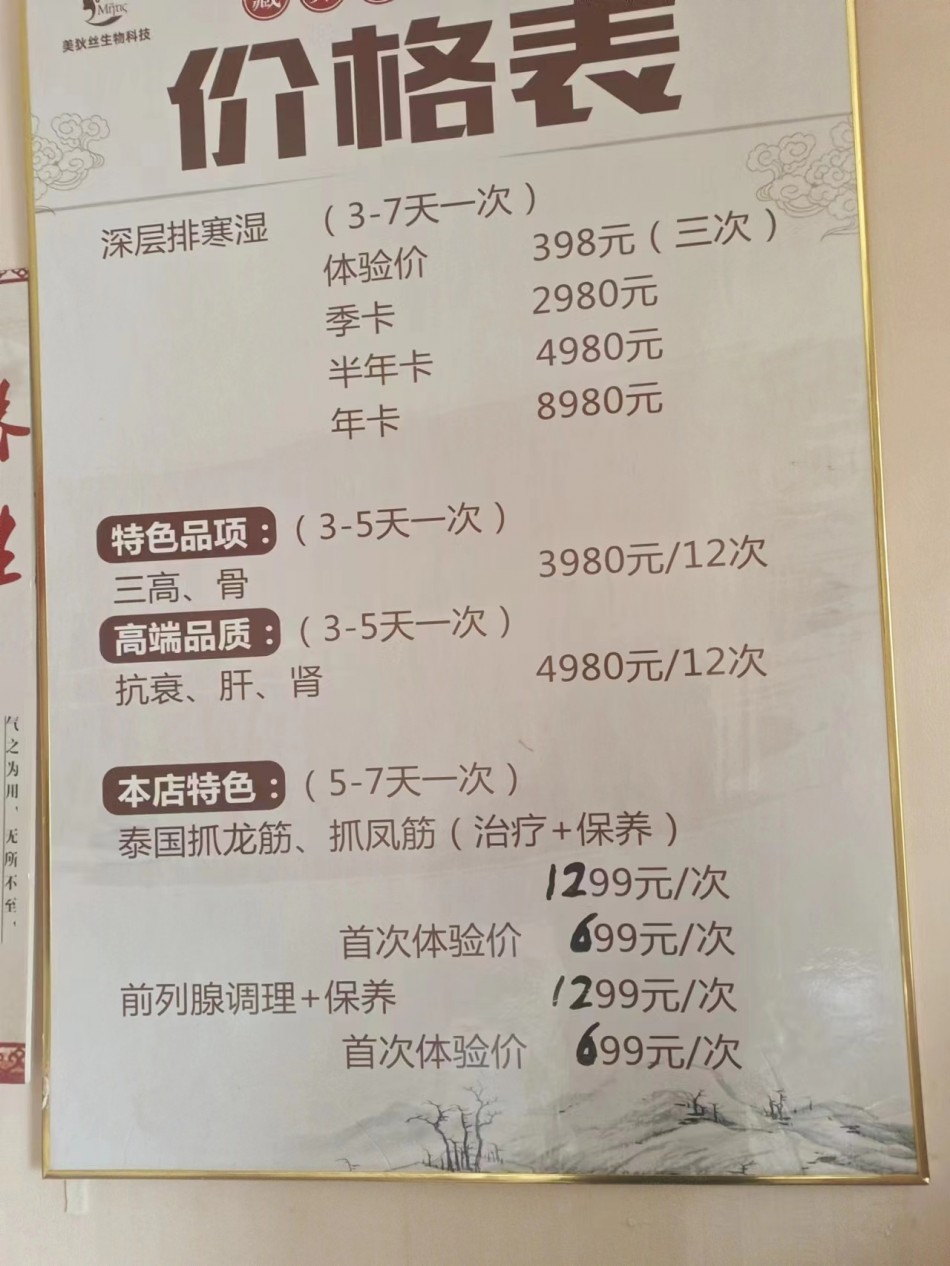 Μῆτις
美狄丝生物科技
藏
价格表
深层排寒湿 （3-7天一次）
体验价 398元（三次）
季卡 2980元
半年卡 4980元
年卡 8980元
特色品项：（3-5天一次）
三高、骨 3980元/12次
高端品质：（3-5天一次）
抗衰、肝、肾 4980元/12次
本店特色：（5-7天一次）
泰国抓龙筋、抓凤筋（治疗+保养）
1299元/次
首次体验价 699元/次
前列腺调理+保养 1299元/次
首次体验价 699元/次
气之为用，无所不至，